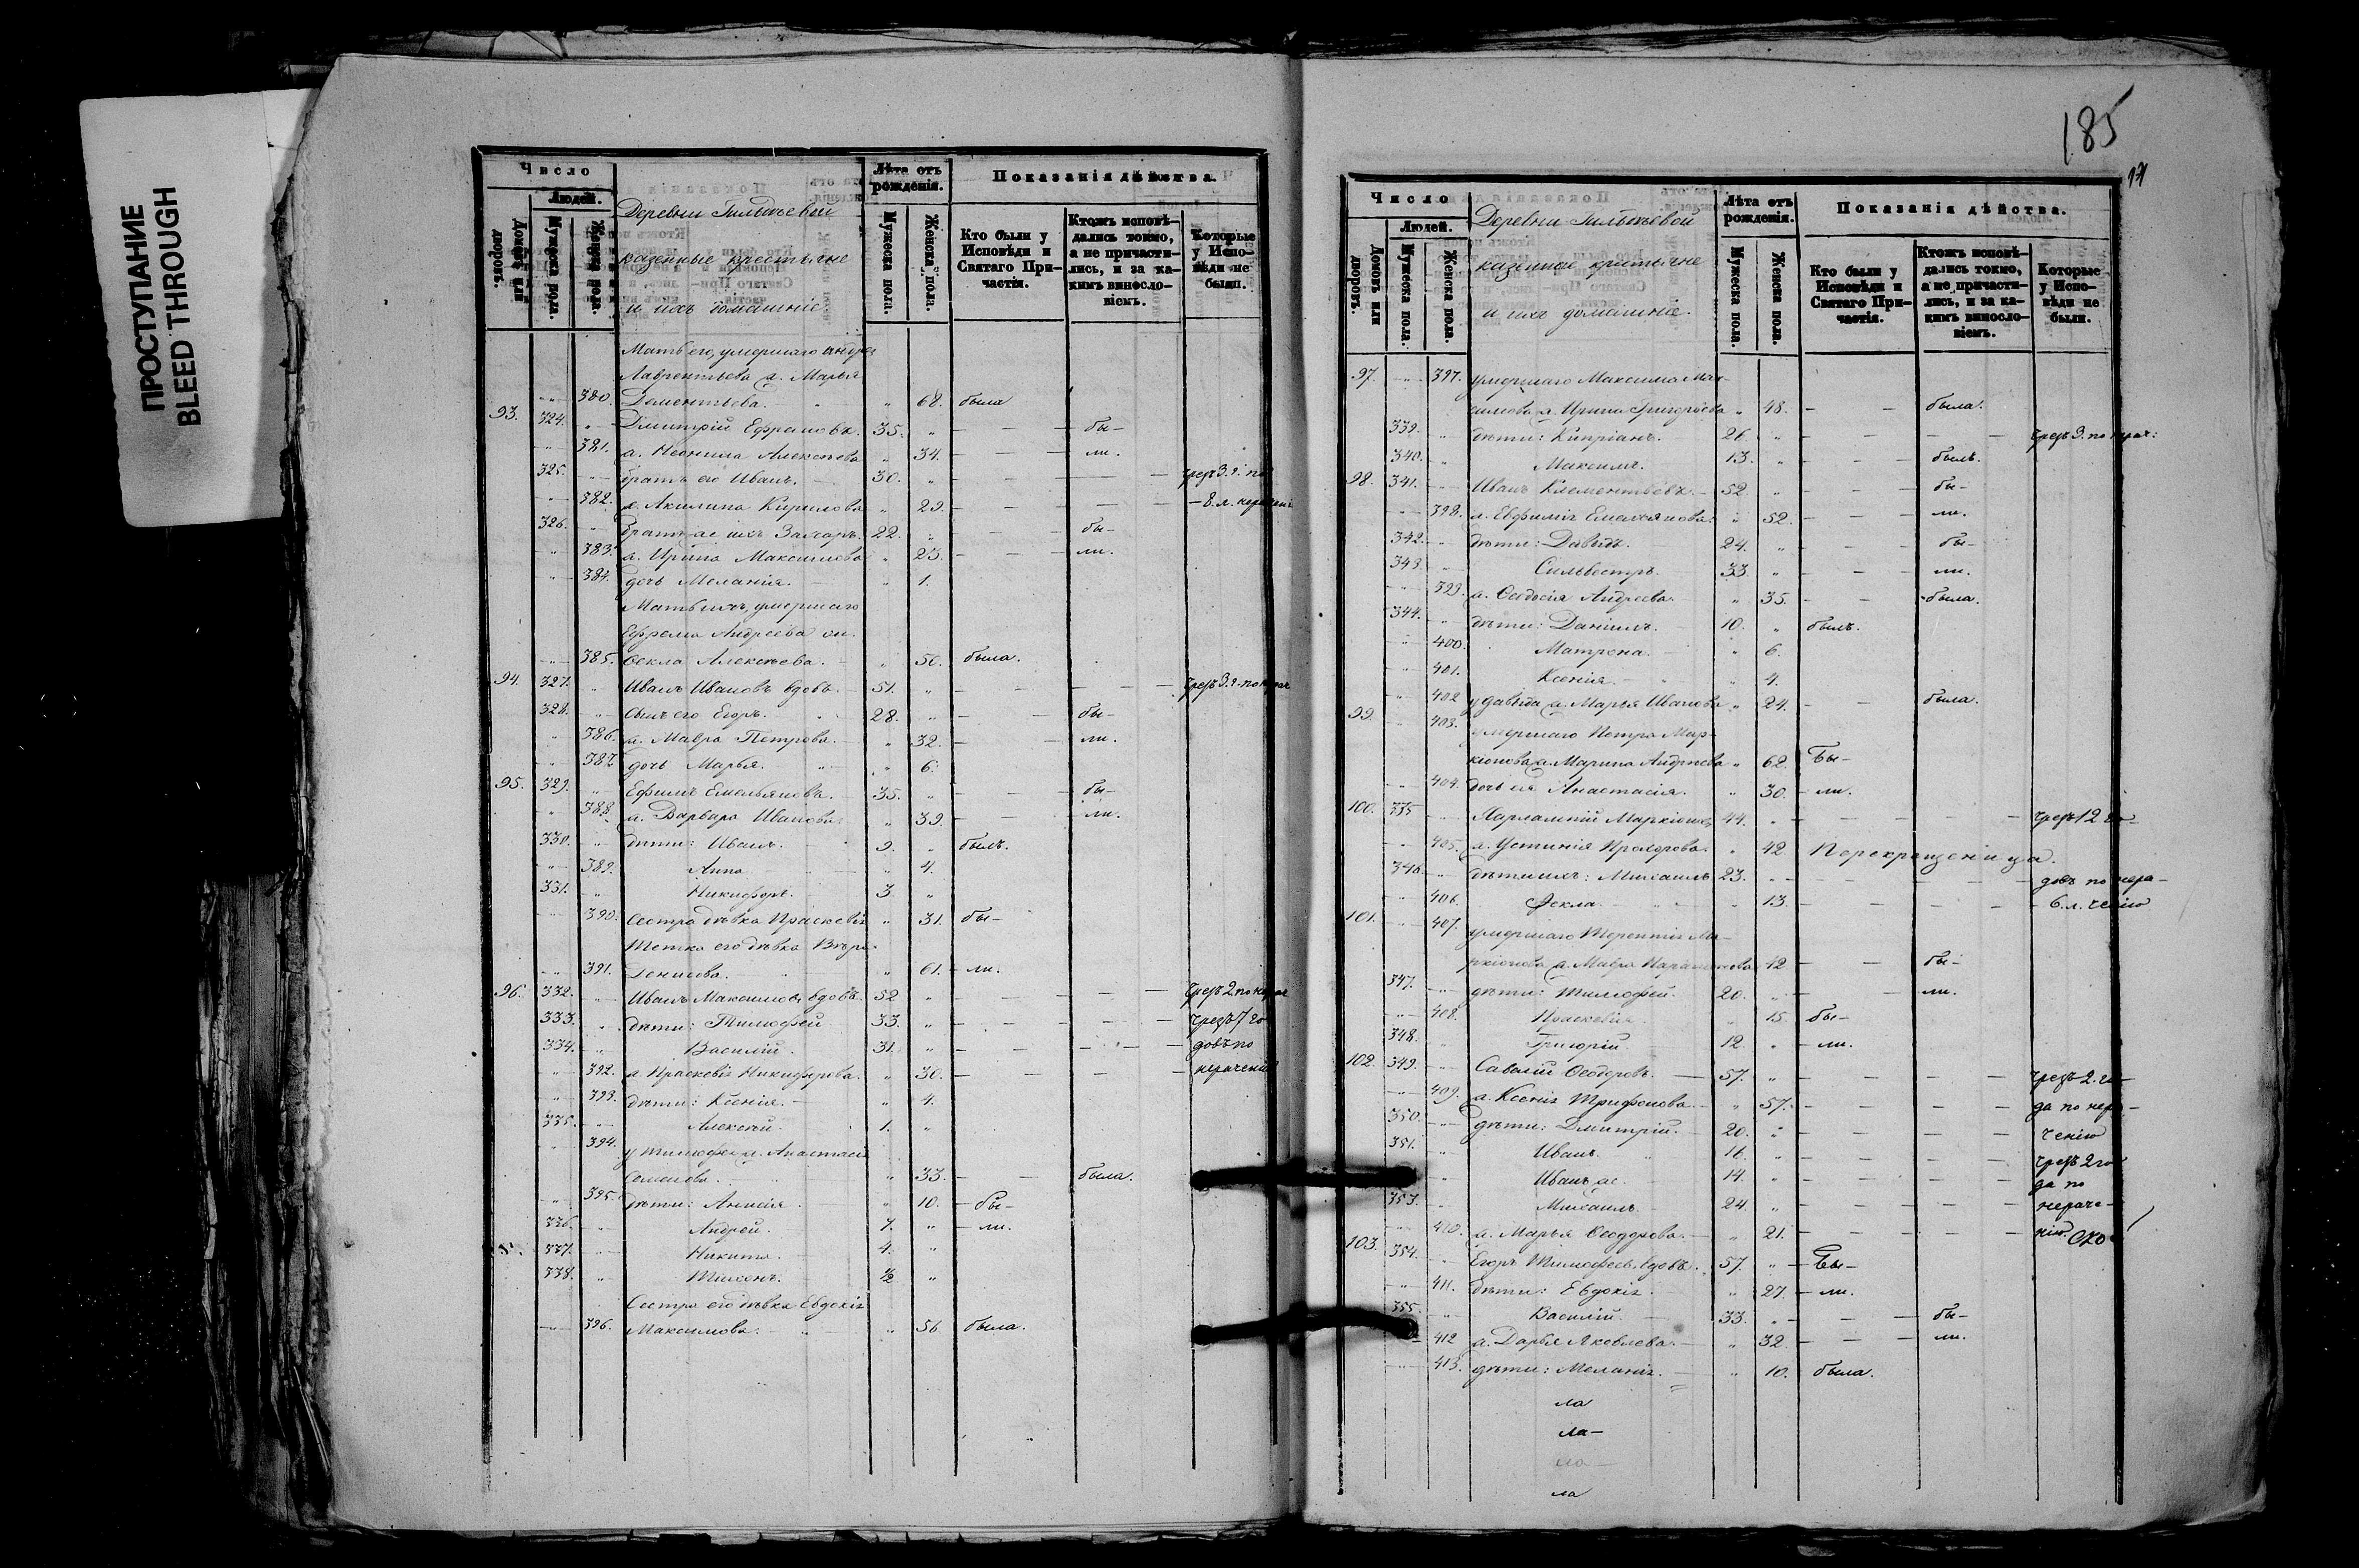 ПРОСТУПАНИЕ
BLEED THROUGH
Число
Людей.
Домовъ или дворовъ.
Мужеска пола.
Женска пола.
Деревни
казенные крестьяне
и ихъ домашніе
Лѣта отъ рожденія.
Мужеска пола.
Женска пола.
Показанія дѣйства.
Кто были у Исповѣди и Святаго Причастія.
Ктожъ исповѣдались токмо, а не причастились, и за какимъ винословіемъ.
Которые у Исповѣди не были.
Мать его, умершаго Андрея
Лаврентьева ж. Марья
380. Дементьева. 68. была
93. 324. Дмитрій Ефремовъ. 35. бы-
381. ж. Неонила Алексѣева 34. ли.
325. братъ его Иванъ. 30. чрезъ 3. г. по
382. ж. Акилина Кирилова 29. - 8. л.
326. братъ же ихъ Захаръ. 22. бы-
383. ж. Ирина Максимова 23. ли.
384. дочь Меланія. 1.
Мать ихъ, умершаго
Ефрема Андреева ж.
385. Ѳекла Алексѣева. 50. была.
94. 327. Иванъ Ивановъ вдовъ. 51. чрезъ 3. г. по
328. Сынъ его Егоръ. 28. бы-
386. ж. Мавра Петрова. 32. ли.
387. дочь Марья. 6.
95. 329. Ефимъ Емельяновъ. 35. бы-
388. ж. Варвара Иванова. 39. ли.
330. дѣти: Иванъ. 9. былъ.
389. Анна 4.
331. Никифоръ. 3
390. Сестра дѣвка Праскевія 31. бы-
Тетка его дѣвка Вѣра
391. Денисова. 61. ли.
96. 332. Иванъ Максимовъ вдовъ. 52 чрезъ 2. по
333. дѣти: Тимофей 33. чрезъ 7 го-
334. Василій. 31. довъ по
392. ж. Праскевія Никифорова. 30. нераченію
393. дѣти: Ксенія. 4.
335. Алексѣй. 1.
394. у Тимофея ж. Анастасія
Семенова. 33. была.
395. дѣти: Анисія. 10. бы-
336. Андрей. 7. ли.
337. Никита. 4.
338. Тихонъ. ½
Сестра его дѣвка Евдокія
396. Максимова. 56 была.
185
Число
Людей.
Домовъ или дворовъ.
Мужеска пола.
Женска пола.
Деревни
казенные крестьяне
и ихъ домашніе.
Лѣта отъ рожденія.
Мужеска пола.
Женска пола.
Показанія дѣйства.
Кто были у Исповѣди и Святаго Причастія.
Ктожъ исповѣдались токмо, а не причастились, и за какимъ винословіемъ.
Которые у Исповѣди не были.
97. 397. умершаго Максима Мак-
симова ж. Ирина Григорьева 48. была.
339. дѣти: Кипріанъ. 26. чрезъ 3. по
340. Максимъ. 13. былъ.
98. 341. Иванъ Клементьевъ. 52 бы-
398. ж. Евфимія Емельянова. 52. ли.
342. дѣти: Давыдъ. 24. бы-
343. Сильвестръ. 33. ли.
399. ж. Ѳедосія Андреева. 35. была.
344. дѣти: Даніилъ. 10. былъ.
400. Матрона. 6.
401. Ксенія. 4.
402 у Давыда ж. Марья Иванова 24. была.
99. 403. умершаго Петра Мар-
кіонова ж. Марина Андреева 62. Бы-
404. дочь ея Анастасія. 30. ли.
100. 335 Харлампій Маркіоновъ 44. чрезъ 12 го-
405. ж. Устинія Прохорова. 42 Перекрещеница.
346. дѣти ихъ: Михаилъ 23. довъ по нера-
406. Ѳекла. 13. 6. л. ченію
101. 407. умершаго Терентія Ма-
ркіонова ж. Мавра 42 бы-
347. дѣти: Тимофей. 20. ли.
408. Праскевія 15. бы-
348. Григорій. 12. ли.
102. 349. Савелій Ѳеодоровъ. 57. чрезъ 2. го-
409. ж. Ксенія Трифонова. 57. да по нера-
350. дѣти: Дмитрій. 20. ченію
351. Иванъ. 16. чрезъ 2 го-
Иванъ же. 14. да по
353. Михаилъ. 24. нераче-
410. ж. Марья Ѳеодорова. 21. нію.
103. 354. Егоръ Тимофеевъ вдовъ. 57. Бы-
411. дѣти: Евдокія. 27. ли.
355. Василій. 33. бы-
412 ж. Дарья Яковлева. 32. ли.
413. дѣти: Меланія. 10. была.
ла
ла-
ла
ла